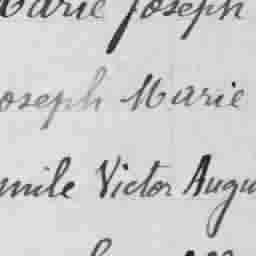 Marie Joseph
oseph Marie
mile Victor Augu